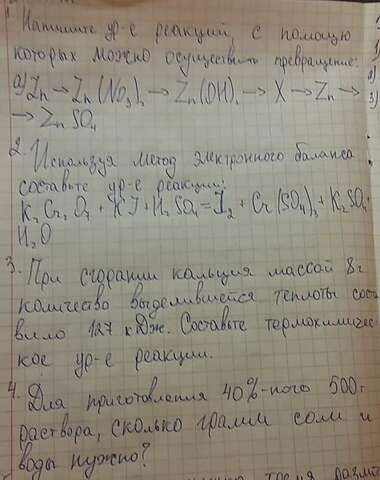 1. Напишите ур-е реакций, с помощью
которых можно осуществить превращение:
а) Zn → Zn(No3)2 → Zn(OH)2 → X → Zn →
→ ZnSO4
2. Используя метод электронного баланса
составьте ур-е реакции:
K2Cr2O7 + KJ + H2SO4 = I2 + Cr2(SO4)3 + K2SO4
H2O
3. При сгорании кальция массой 8г
количество выделившейся теплоты соста
вило 127 кДж. Составьте термохимичес
кое ур-е реакции.
4. Для приготовления 40%-ного 500г
раствора, сколько грамм соли и
воды нужно?